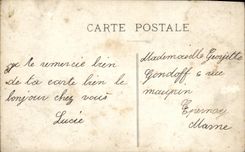 CARTE POSTALE
je te remercie bien
de ta carte bien le
bonjour chez vous
Lucie
Mademoiselle Georgette
Gondoff 6 rue
maupin
Epernay
Marne